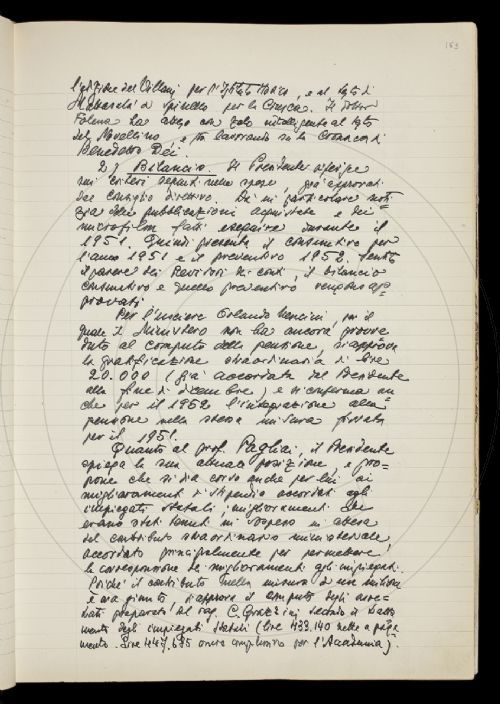 153
l'edizione del Villani per l'Istituto Storico, e al testo di
Malarachi di Spinello per la Crusca. Il dottor
Folena ha atteso con zelo intelligente al testo
del Novellino, e sta lavorando su la Cronaca di
Benedetto Dei.
2) Bilancio. Il Presidente riferisce
sui criteri seguiti nelle spese, già approvati
dal Consiglio direttivo. Dà in particolare noti
zia delle pubblicazioni acquistate e dei
microfilm fatti eseguire durante il
1951. Quindi presenta il consuntivo per
l'anno 1951 e il preventivo 1952. Sentito
il parere dei Revisori dei conti, il bilancio
consuntivo e quello preventivo vengono ap=
provati.
Per l'usciere Orlando Mencini, per il
quale il Ministero non ha ancora provve
duto al computo della pensione, si approva
la gratificazione straordinaria di lire
20.000 (già accordata dal Presidente
alla fine di dicembre), e si conferma an
che per il 1952 l'integrazione alla
pensione nella stessa misura fissata
per il 1951.
Quanto al prof. Pagliai, il Presidente
spiega la sua attuale posizione, e pro=
pone che si dia corso anche per lui ai
miglioramenti di stipendio accordati agli
impiegati statali; miglioramenti che
erano stati tenuti in sospeso in attesa
del contributo straordinario ministeriale
accordato principalmente per permettere
la corresponsione dei miglioramenti agli impiegati.
Poiché il contributo nella misura di un milione
è ora giunto, si approva il computo degli arre=
trati preparati dal rag. C. Grazzini secondo il tratta
mento degli impiegati statali (lire 433.140 nette a paga
mento. Lire 447.635 onere complessivo per l'Accademia).